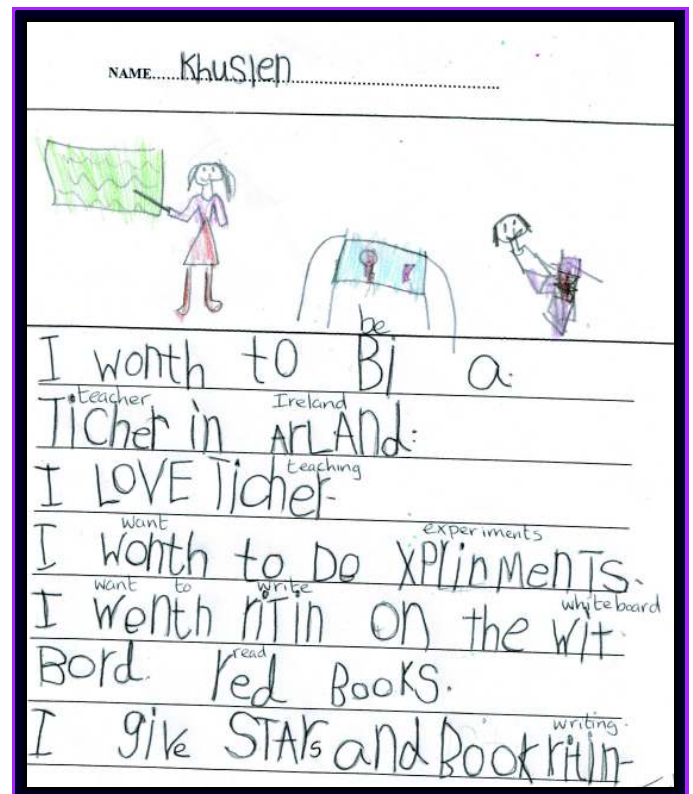 NAME......Khuslen..............................
be
I wonth to Bi a.
teacher Ireland
Ticher in ArLAnd:
teaching
I LOVE Ticher-
want experiments
I Wonth to Do XPlinMenTs.
want to write whiteboard
I Wenth riTin on the wit
read
Bord. red BooKS.
writing.
I give STArs and Book ritin-